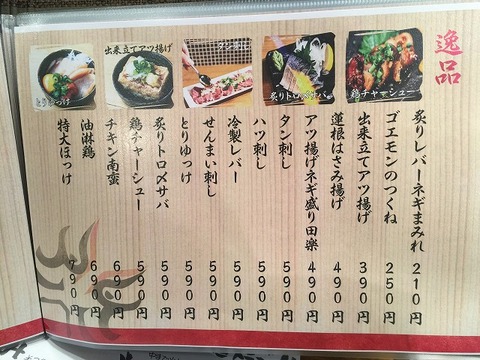 逸品
炙りレバーネギまみれ 210円
ゴエモンのつくね 250円
出来立てアツ揚げ 390円
蓮根はさみ揚げ 490円
アツ揚げネギ盛り田楽 490円
タン刺し 590円
ハツ刺し 590円
冷製レバー 590円
せんまい刺し 590円
とりゆっけ 590円
炙りトロ〆サバ 590円
鶏チャーシュー 590円
チキン南蛮 690円
油淋鶏 690円
特大ほっけ 790円
鶏チャーシュー
炙りトロ〆サバ
タン刺し
出来立てアツ揚げ
とりゆっけ